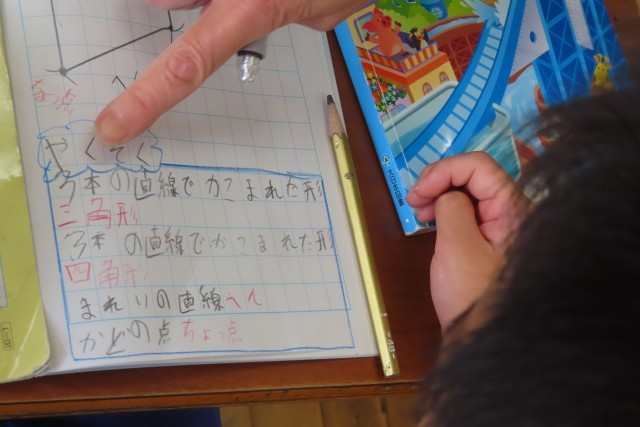 やくそく
3本の直線でかこまれた形
三角形
3本の直線でかこまれた形
四角形
まわりの直線へん
かどの点ちょう点
大日本図書